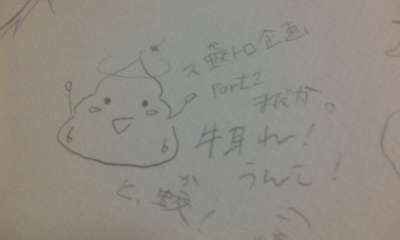 蚊トロ企画
Part2
まだか。
牛耳れ!
うんこ!
と、
か
!